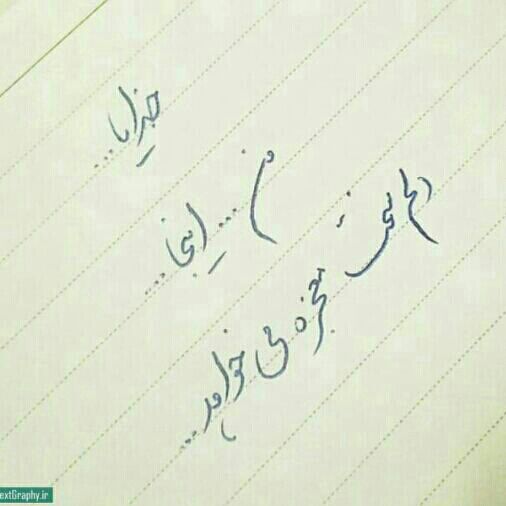 خدایا...
من... اینجا...
دلم سخت معجزه می خواهد...
extGraphy.ir